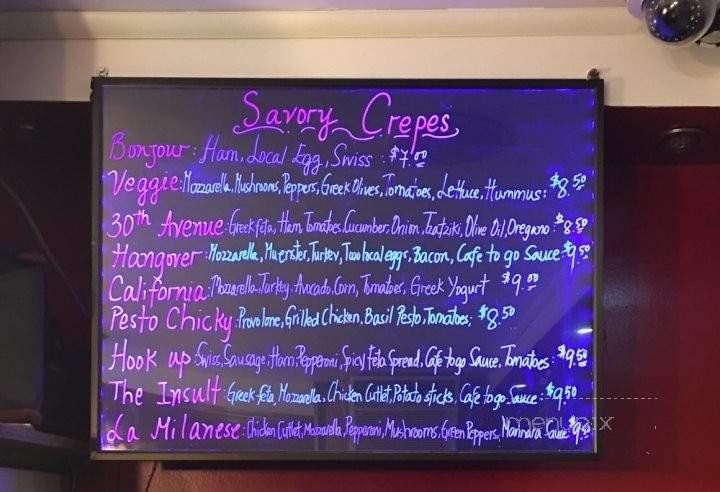 Savory Crepes
Bonjour: Ham, Local Egg, Swiss: $7.00
Veggie: Mozzarella, Mushrooms, Peppers, Greek Olives, Tomatoes, Lettuce, Hummus: $8.50
30th Avenue: Greek feta, Ham, Tomatoes, Cucumber, Onion, Tzatziki, Olive Oil, Oregano: $8.50
Hangover: Mozzarella, Muenster, Turkey, Two local eggs, Bacon, Cafe to go Sauce: $9.50
California: Mozzarella, Turkey, Avocado, Corn, Tomatoes, Greek Yogurt $9.00
Pesto Chicky: Provolone, Grilled Chicken, Basil Pesto, Tomatoes; $8.50
Hook up: Swiss, Sausage, Ham, Pepperoni, Spicy feta Spread, Cafe to go Sauce, Tomatoes: $9.50
The Insult: Greek feta, Mozzarella, Chicken Cutlet, Potato sticks, Cafe to go Sauce: $9.50
La Milanese: Chicken Cutlet, Mozzarella, Pepperoni, Mushrooms, Green Peppers, Mannara Sauce $9.50
menupix